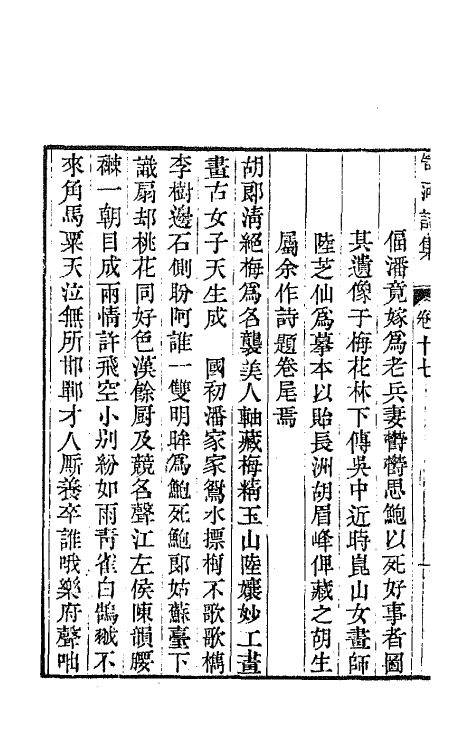 笥河詩集　卷十七
偪潘竟嫁爲老兵妻鬱鬱思鮑以死好事者圖
其遺像于梅花林下傳吳中近時崑山女畫師
陸芝仙爲摹本以貽長洲胡眉峰俾藏之胡生
屬余作詩題卷尾焉
胡郎淸絕梅爲名襲美人軸藏梅精玉山陸孃妙工畫
畫古女子天生成　國初潘家家鴛水摽梅不歌歌檇
李樹邊石側盼阿誰一雙明眸爲鮑死鮑郎姑蘇臺下
識扇却桃花同好色漢餘厨及競名聲江左侯陳韻腰
䙅一朝目成兩情許飛空小別紛如雨靑雀白鵠緘不
來角馬粟天泣無所邯鄲才人厮養卒誰哦樂府聲咄